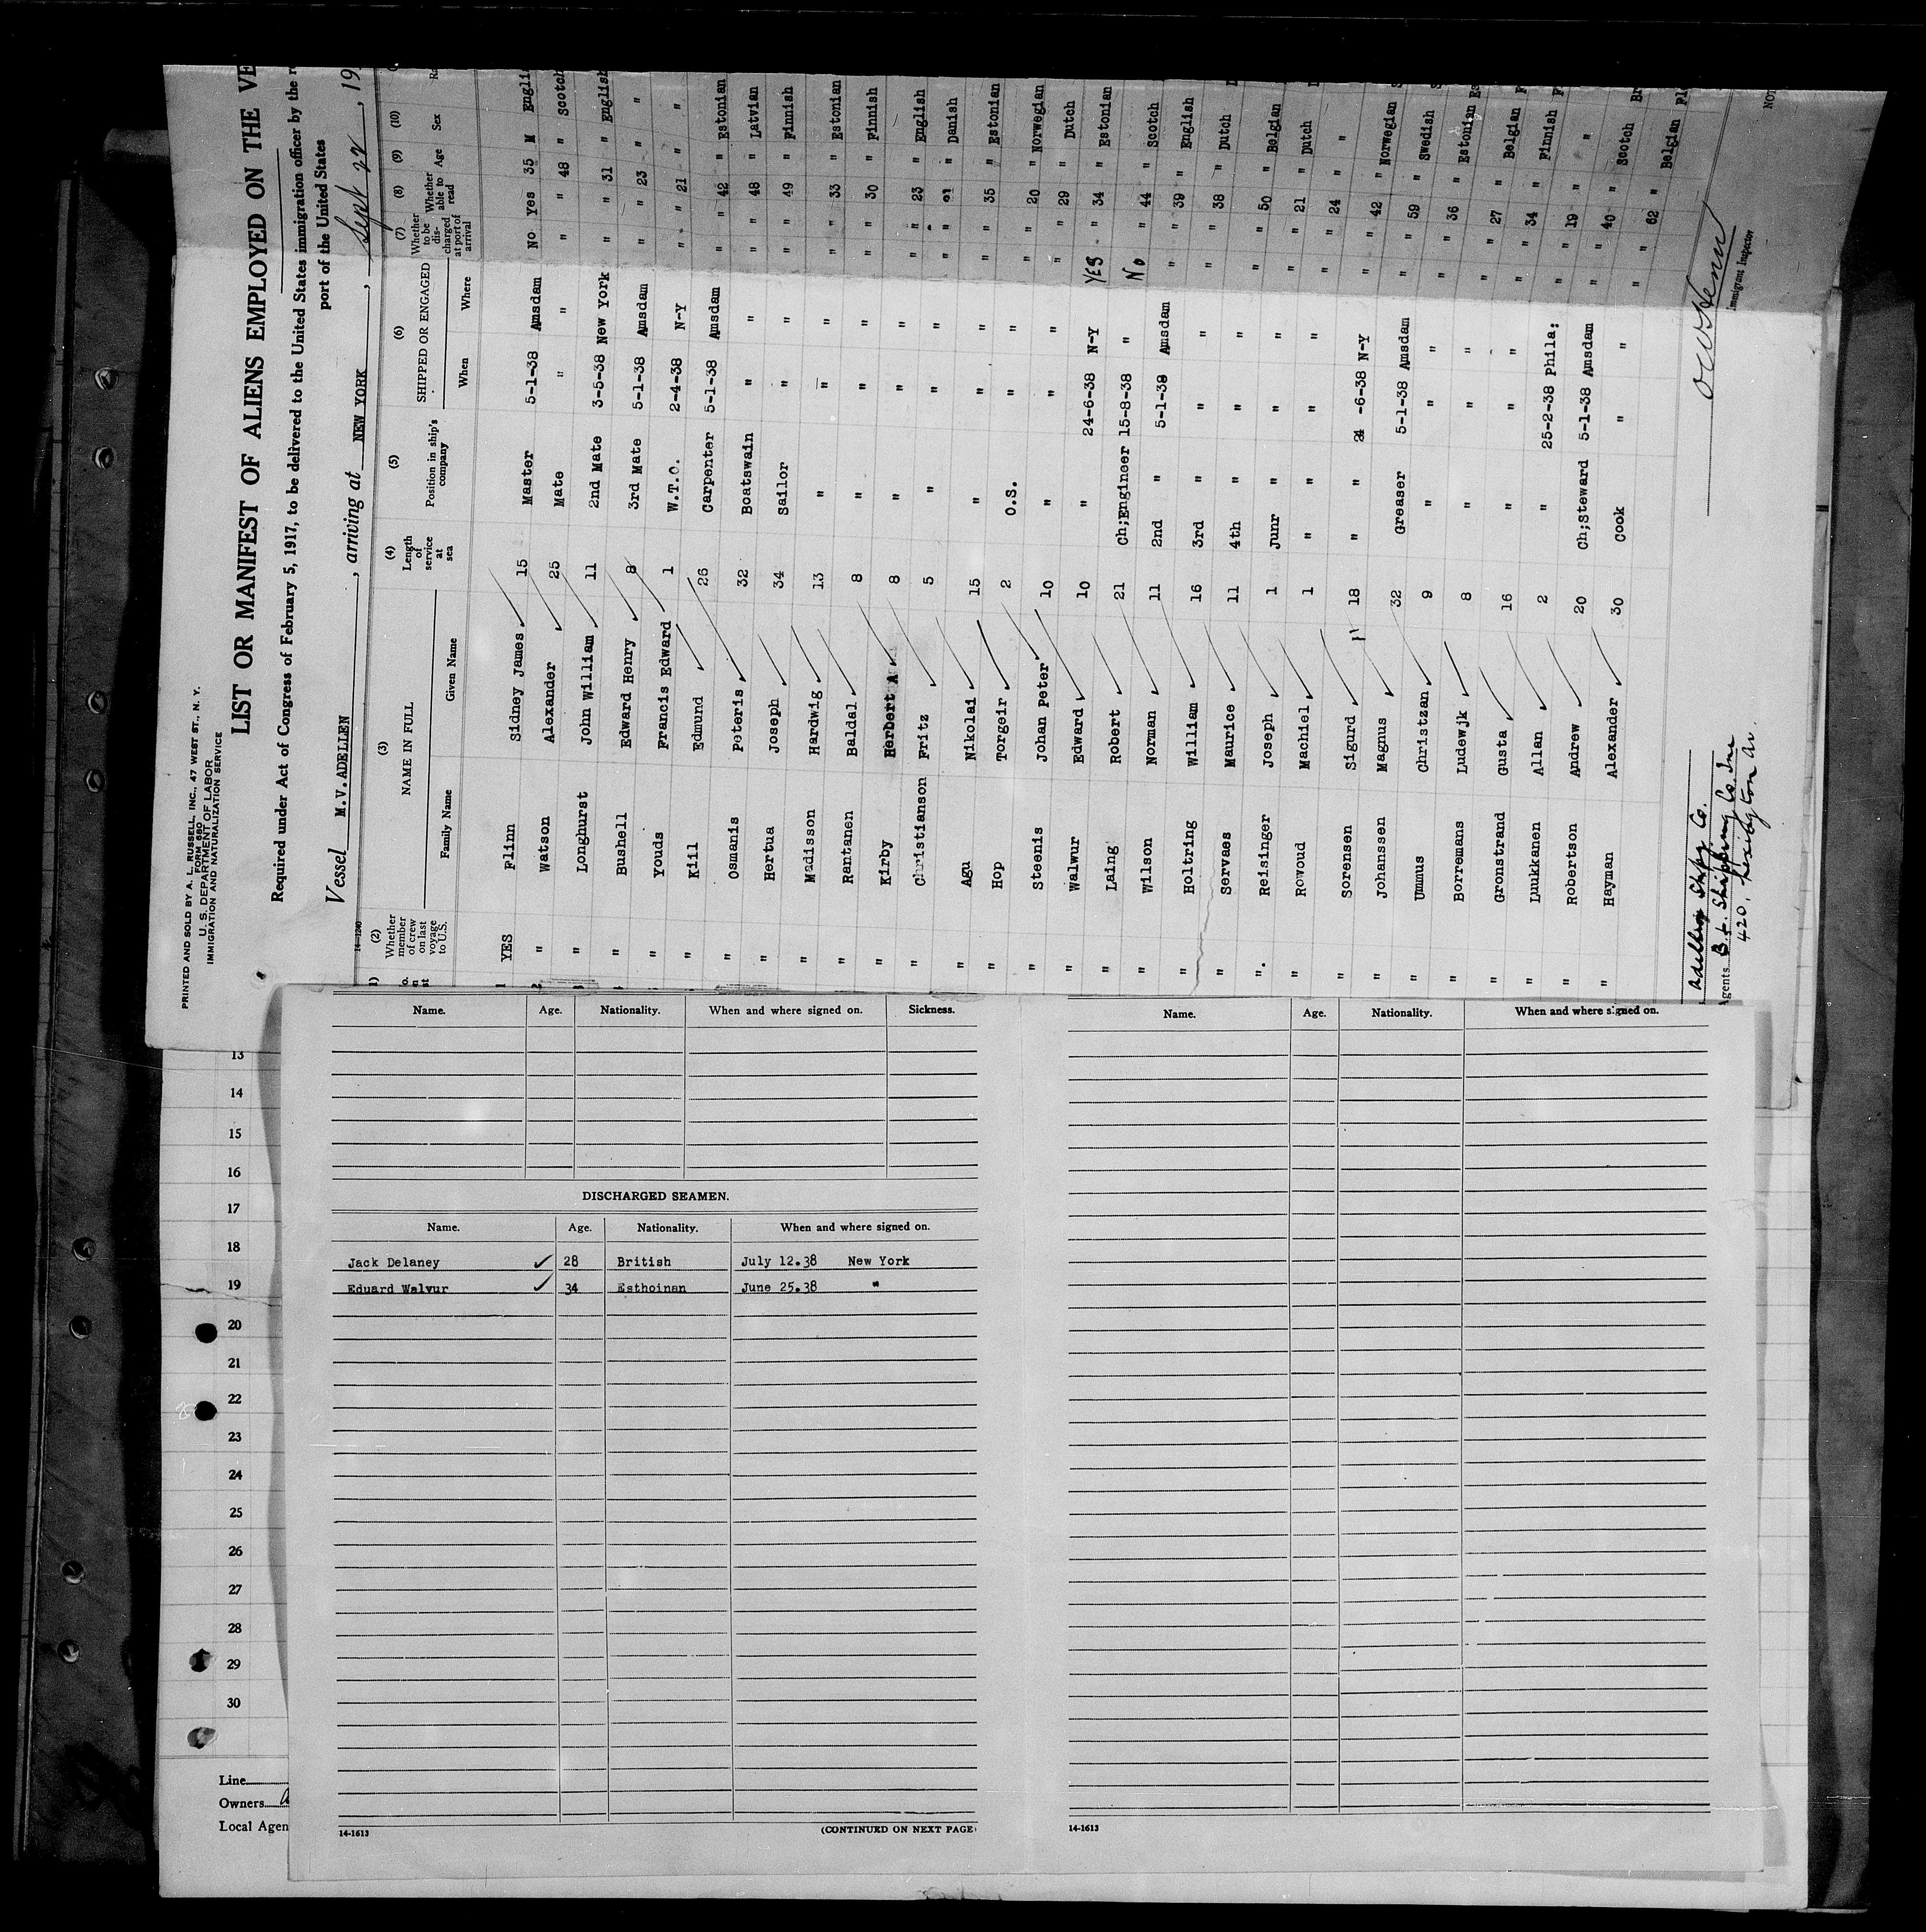 PRINTED AND SOLD BY A. L. RUSSELL, INC., 47 WEST ST., N. Y.
FORM 680
U. S. DEPARTMENT OF LABOR
IMMIGRATION AND NATURALIZATION SERVICE
LIST OR MANIFEST OF ALIENS EMPLOYED ON THE VE
Required under Act of Congress of February 5, 1917, to be delivered to the United States immigration officer by the r
port of the United States
Vessel M.V. ADELLEN, arriving at NEW YORK, Sept 22, 19
14-1240
(1) (2) (3) (4) (5) (6) (7) (8) (9) (10)
Whether member of crew on last voyage to U.S. NAME IN FULL Length of service at sea Position in ship's company SHIPPED OR ENGAGED Whether to be discharged at port of arrival Whether able to read Age Sex
Family Name Given Name When Where
1 YES Flinn Sidney James 15 Master 5-1-38 Amsdam No Yes 35 M Engli
2 " Watson Alexander 25 Mate " " " " 48 " Scotch
" Longhurst John William 11 2nd Mate 3-5-38 New York " " 31 " English
" Bushell Edward Henry 8 3rd Mate 5-1-38 Amsdam " " 23 " "
" Youds Francis Edward 1 W.T.O. 2-4-38 N-Y " " 21 " "
" Kiil Edmund 26 Carpenter 5-1-38 Amsdam " " 42 " Estonian
" Osmanis Peteris 32 Boatswain " " " " 48 " Latvian
" Hertua Joseph 34 Sailor " " " " 49 " Finnish
" Madisson Hardwig 13 " " " " " 33 " Estonian
" Rantanen Baldal 8 " " " " " 30 " Finnish
" Kirby Herbert A 8 " " " " " 23 " English
" Christianson Fritz 5 " " " " " " Danish
" Agu Nikolai 15 " " " " " 35 " Estonian
" Hop Torgeir 2 O.S. " " " " 20 " Norwegian
" Steenis Johan Peter 10 " " " " " 29 " Dutch
" Walwur Edward 10 " 24-6-38 N-Y YES " 34 " Estonian
" Laing Robert 21 Ch;Engineer 15-8-38 " No " 44 " Scotch
" Wilson Norman 11 2nd " 5-1-38 Amsdam " " 39 " English
" Holtring William 16 3rd " " " " " 38 " Dutch
" Servaes Maurice 11 4th " " " " " 50 " Belgian
". Reisinger Joseph 1 Junr " " " " " 21 " Dutch
" Rowoud Machiel 1 " " " " " " 24 " "
" Sorensen Sigurd 18 " " 24-6-38 N-Y " " 42 " Norwegian
" Johanssen Magnus 32 Greaser 5-1-38 Amsdam " " 59 " Swedish
" Ummus Christzan 9 " " " " " 36 " Estonian
" Borremans Ludewjk 8 " " " " " 27 " Belgian
" Gronstrand Gusta 16 " " " " " 34 " Finnish
" Luukkanen Allan 2 " 25-2-38 Phila; " " 19 " "
" Robertson Andrew 20 Ch;Steward 5-1-38 Amsdam " " 40 " Scotch
" Hayman Alexander 30 Cook " " " " 62 " Belgian
Immigrant Inspector
Adellen Shpg Co.
Agents B. & Shipping Co. Inc
420, Lexington Av.
13
14
15
16
17
18
19
20
21
22
23
24
25
26
27
28
29
30
Line
Owners
Local Agen
Name. Age. Nationality. When and where signed on. Sickness.
DISCHARGED SEAMEN.
Name. Age. Nationality. When and where signed on.
Jack Delaney 28 British July 12.38 New York
Eduard Walvur 34 Esthoinan June 25.38 "
14-1613
(CONTINUED ON NEXT PAGE)
Name. Age. Nationality. When and where signed on.
14-1613